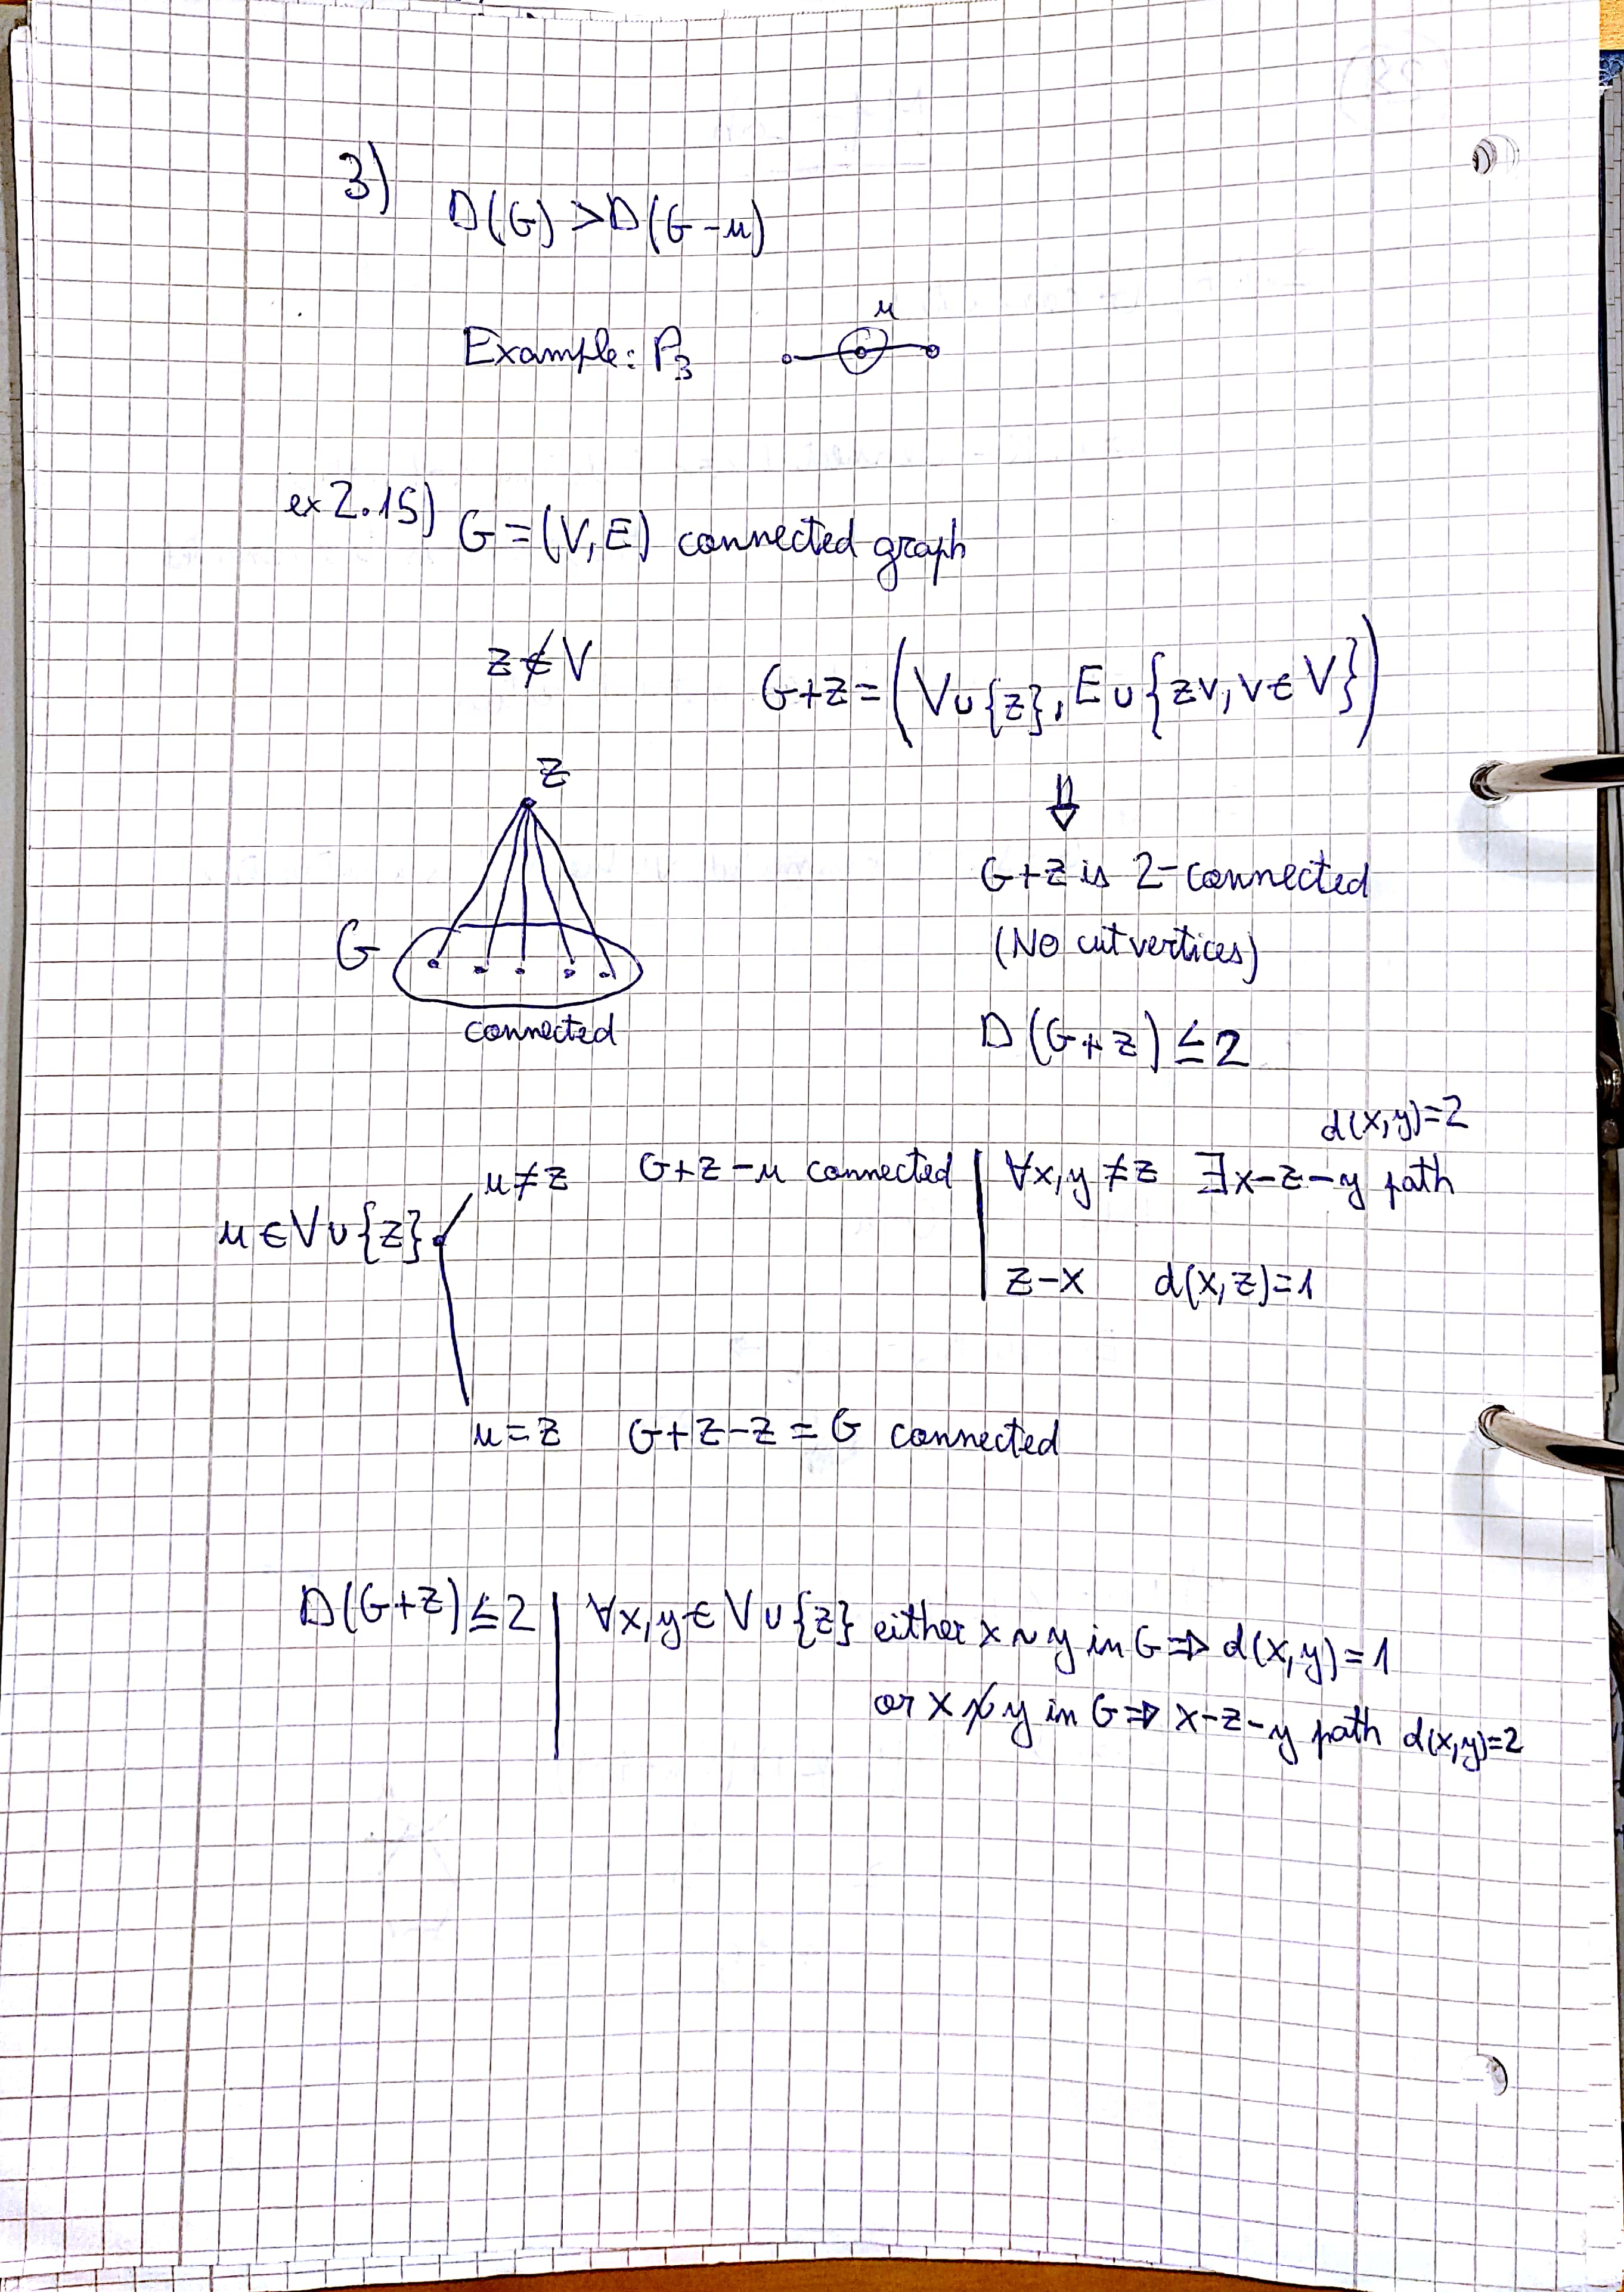 3)
D(G) > D(G-u)
u
Example: P₃
ex 2.15) G = (V, E) connected graph
z ∉ V
G+z = (V∪{z}, E∪{zv, v∈V})
⇓
z
G+z is 2-connected
(No cutvertices)
G
connected
D(G+z) ≤ 2
d(x,y)=2
u≠z G+z-u connected | ∀x,y ≠ z ∃x-z-y path
u∈V∪{z}
z-x d(x,z)=1
u=z G+z-z = G connected
D(G+z) ≤ 2 | ∀x,y ∈ V∪{z} either x~y in G ⇒ d(x,y) = 1
or x≁y in G ⇒ x-z-y path d(x,y)=2